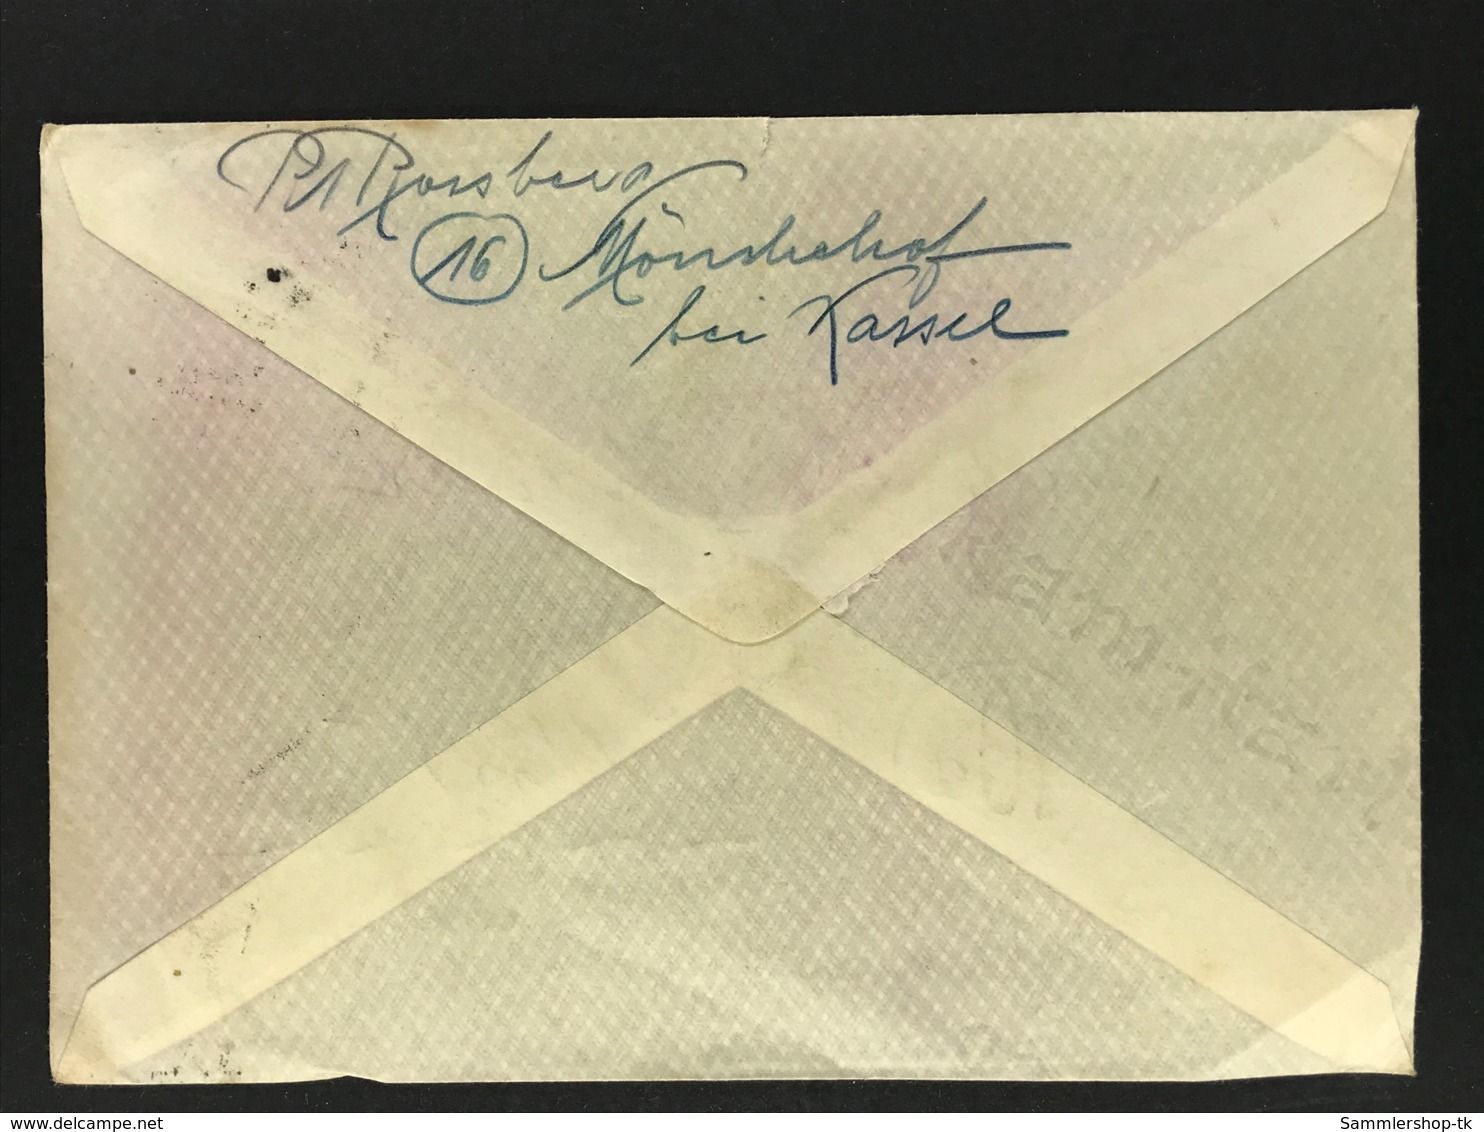 Rossberg
16 Mönchehof
bei Kassel
www.delcampe.net
Sammlershop-tk